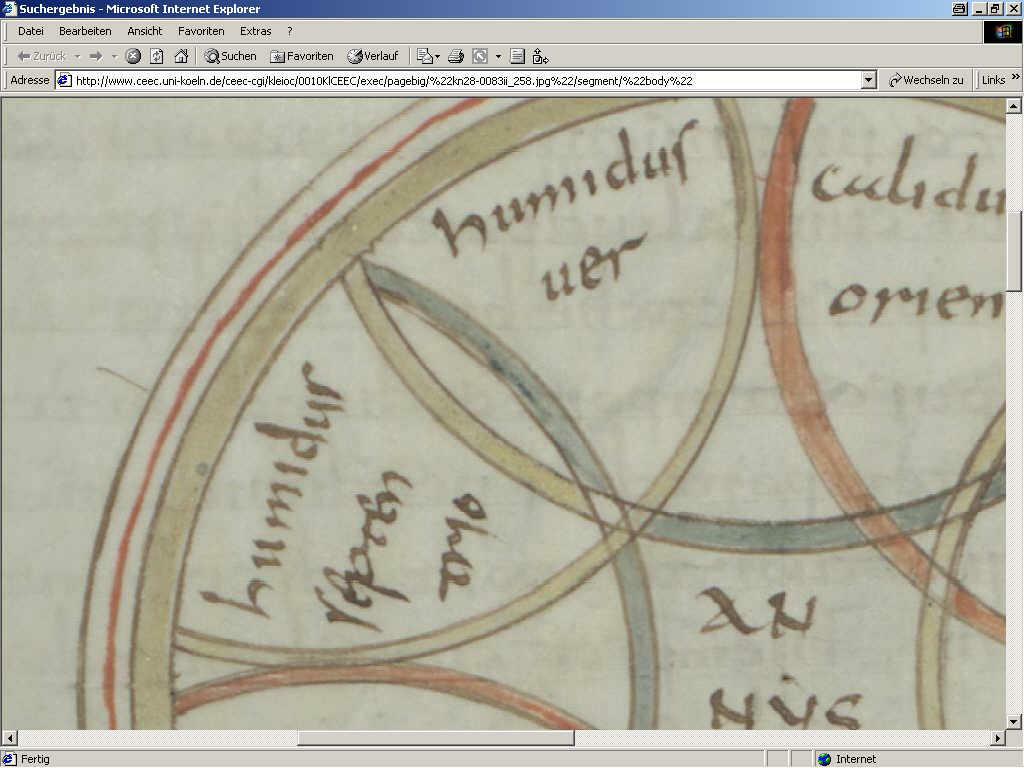 Suchergebnis - Microsoft Internet Explorer
Datei Bearbeiten Ansicht Favoriten Extras ?
Zurück Suchen Favoriten Verlauf
Adresse http://www.ceec.uni-koeln.de/ceec-cgi/kleioc/0010KlCEEC/exec/pagebig/%22kn28-0083ii_258.jpg%22/segment/%22body%22 Wechseln zu Links »
humidus
uer
calidu
orien
humidus
AN
NUS
Fertig Internet